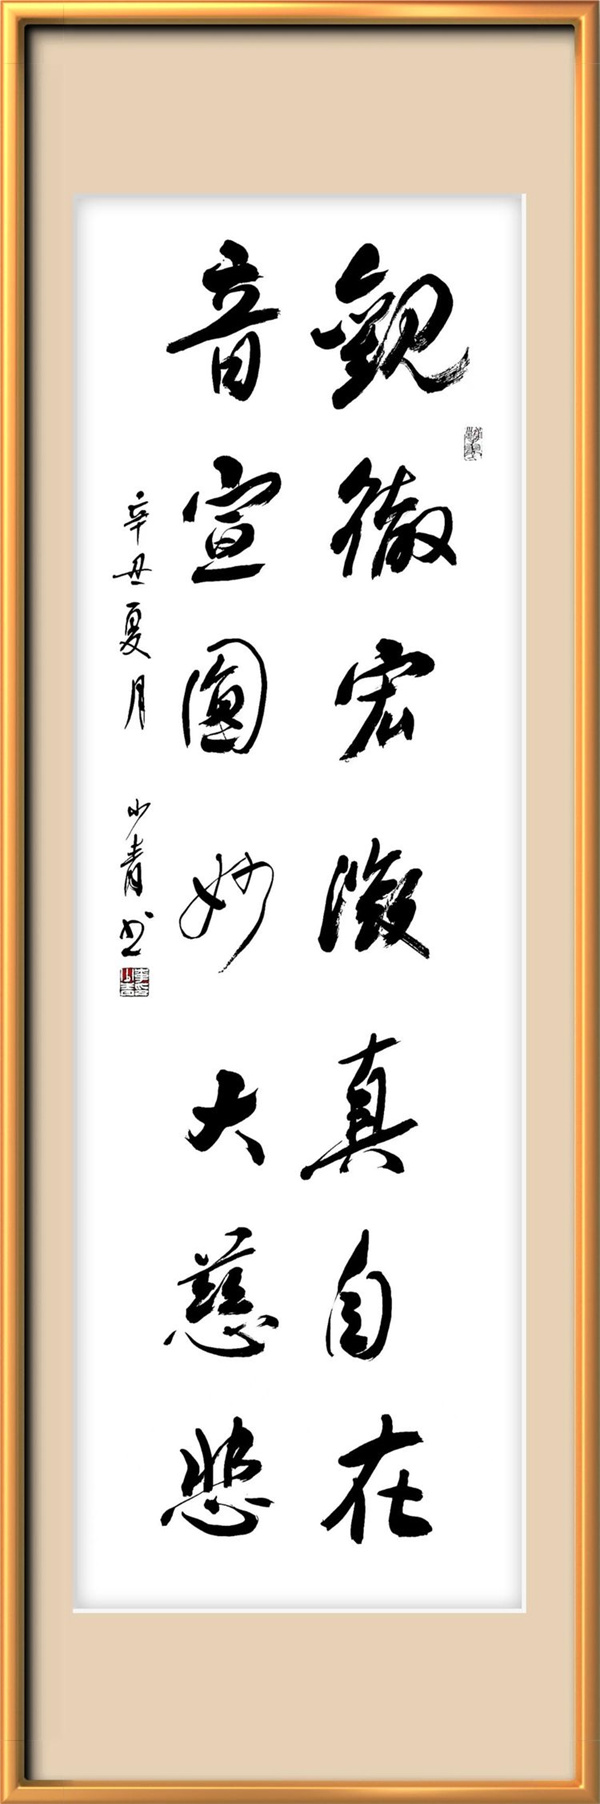 觀徹宏微真自在
音宣圓妙大慈悲
辛丑夏月 小青书